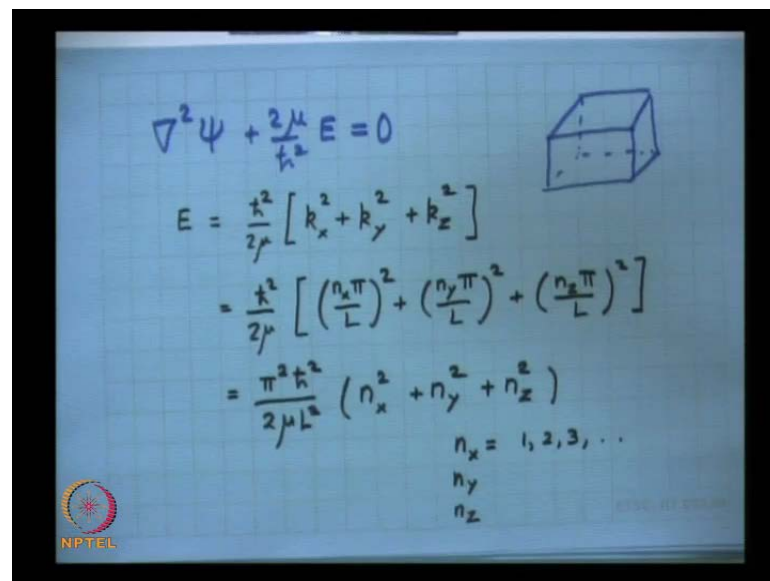 ∇²ψ + 2μ/ħ² E = 0
E = ħ²/2μ [k_x² + k_y² + k_z²]
= ħ²/2μ [(n_xπ/L)² + (n_yπ/L)² + (n_zπ/L)²]
= π²ħ²/2μL² (n_x² + n_y² + n_z²)
n_x = 1, 2, 3, ..
n_y
n_z
NPTEL